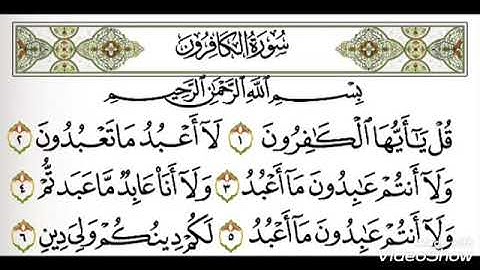 سُورَةُ الكَافِرُونَ
بِسْمِ ٱللَّهِ ٱلرَّحْمَٰنِ ٱلرَّحِيمِ
قُلْ يَٰٓأَيُّهَا ٱلْكَٰفِرُونَ ١ لَآ أَعْبُدُ مَا تَعْبُدُونَ ٢
وَلَآ أَنتُمْ عَٰبِدُونَ مَآ أَعْبُدُ ٣ وَلَآ أَنَا۠ عَابِدٌ مَّا عَبَدتُّمْ ٤
وَلَآ أَنتُمْ عَٰبِدُونَ مَآ أَعْبُدُ ٥ لَكُمْ دِينُكُمْ وَلِىَ دِينِ ٦
VideoShow